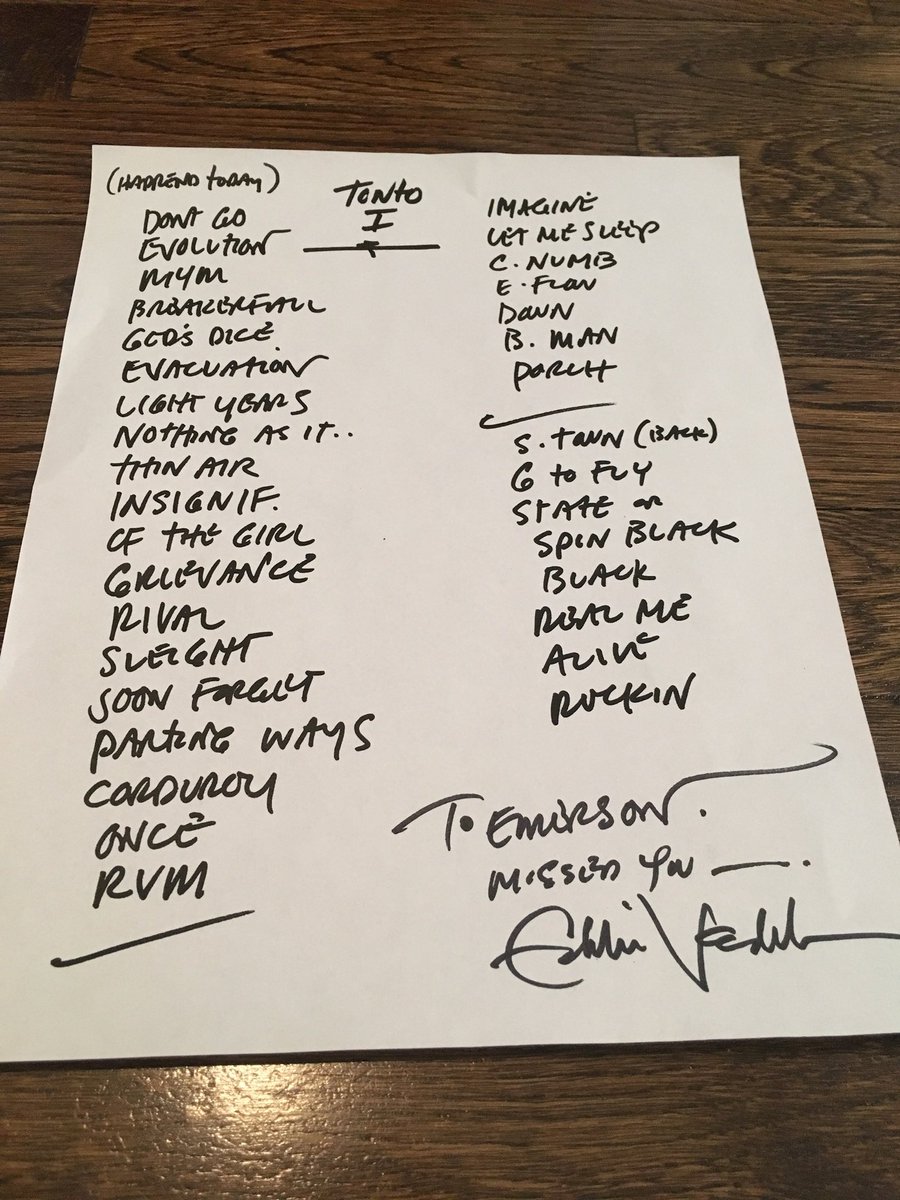 (HAPPEND TODAY)
TONTO
I
DONT GO
EVOLUTION
MYM
BREAKERFALL
GOD'S DICE
EVACUATION
LIGHT YEARS
NOTHING AS IT..
THIN AIR
INSIGNIF.
OF THE GIRL
GRIEVANCE
RIVAL
SLEIGHT
SOON FORGET
PARTING WAYS
CORDUROY
ONCE
RVM
IMAGINE
LET ME SLEEP
C. NUMB
E. FLOW
DAWN
B. MAN
PORCH
S. TOWN (BACK)
G TO FLY
STATE OR
SPIN BLACK
BLACK
REAL ME
ALIVE
ROCKIN
TO EMERSON.
MISSED YOU —.
Eddie Vedder